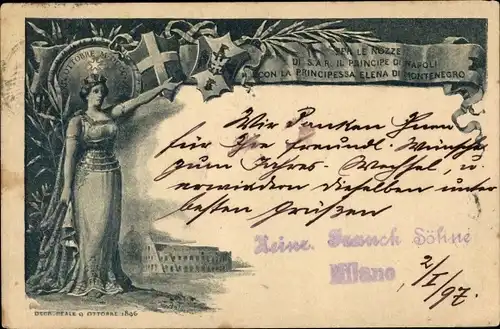 PER LE NOZZE
DI S.A.R. IL PRINCIPE DI NAPOLI
CON LA PRINCIPESSA ELENA DI MONTENEGRO
Wir danken Ihnen
für Ihre freundl. Wünsche
zum Jahres-Wechsel, u.
erwiedern dieselben unter
besten Grüßen
Heinr. Franck Söhne
Milano
2/I/97.
DECR. REALE 9 OTTOBRE 1896